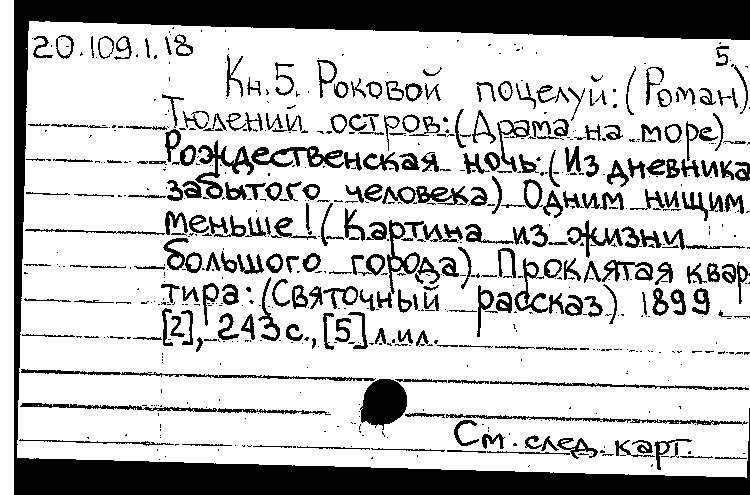 20.109.1.18
5.
Кн.5. Роковой поцелуй: (Роман)
Тюлений остров: (Драма на море)
Рождественская ночь: (Из дневника
забытого человека) Одним нищим
меньше! (Картина из жизни
большого города). Проклятая квар
тира: (Святочный рассказ). 1899.
[2], 243 с., [5] л.ил.
См. след. карт.